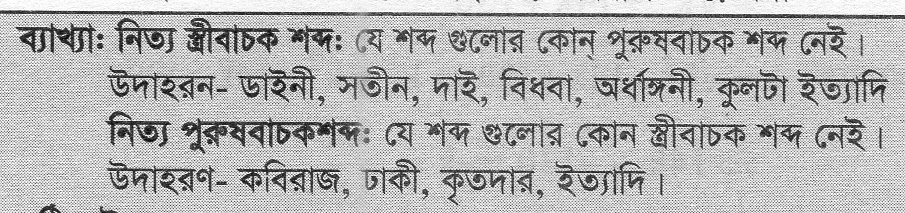 ব্যাখ্যা: নিত্য স্ত্রীবাচক শব্দ: যে শব্দ গুলোর কোন্ পুরুষবাচক শব্দ নেই।
উদাহরন- ডাইনী, সতীন, দাই, বিধবা, অর্ধাঙ্গিনী, কুলটা ইত্যাদি
নিত্য পুরুষবাচকশব্দ: যে শব্দ গুলোর কোন স্ত্রীবাচক শব্দ নেই।
উদাহরণ- কবিরাজ, ঢাকী, কৃতদার, ইত্যাদি।